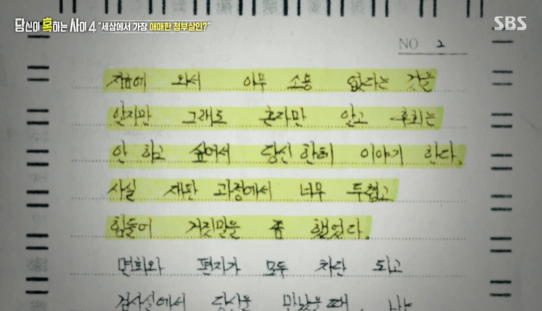 당신이 혹하는 사이 4 "세상에서 가장 애매한 청부살인?"
SBS
NO 2
지금에 와서 아무 소용 없다는 것을
알지만 그래도 혼자만 알고 후회는
안 하고 싶어서 당신한테 이야기 한다.
사실 재판 과정에서 너무 두렵고
힘들어 거짓말을 좀 했었다.
면회와 편지가 모두 차단 되고
검사실에서 당신을 만났을 때, 나는